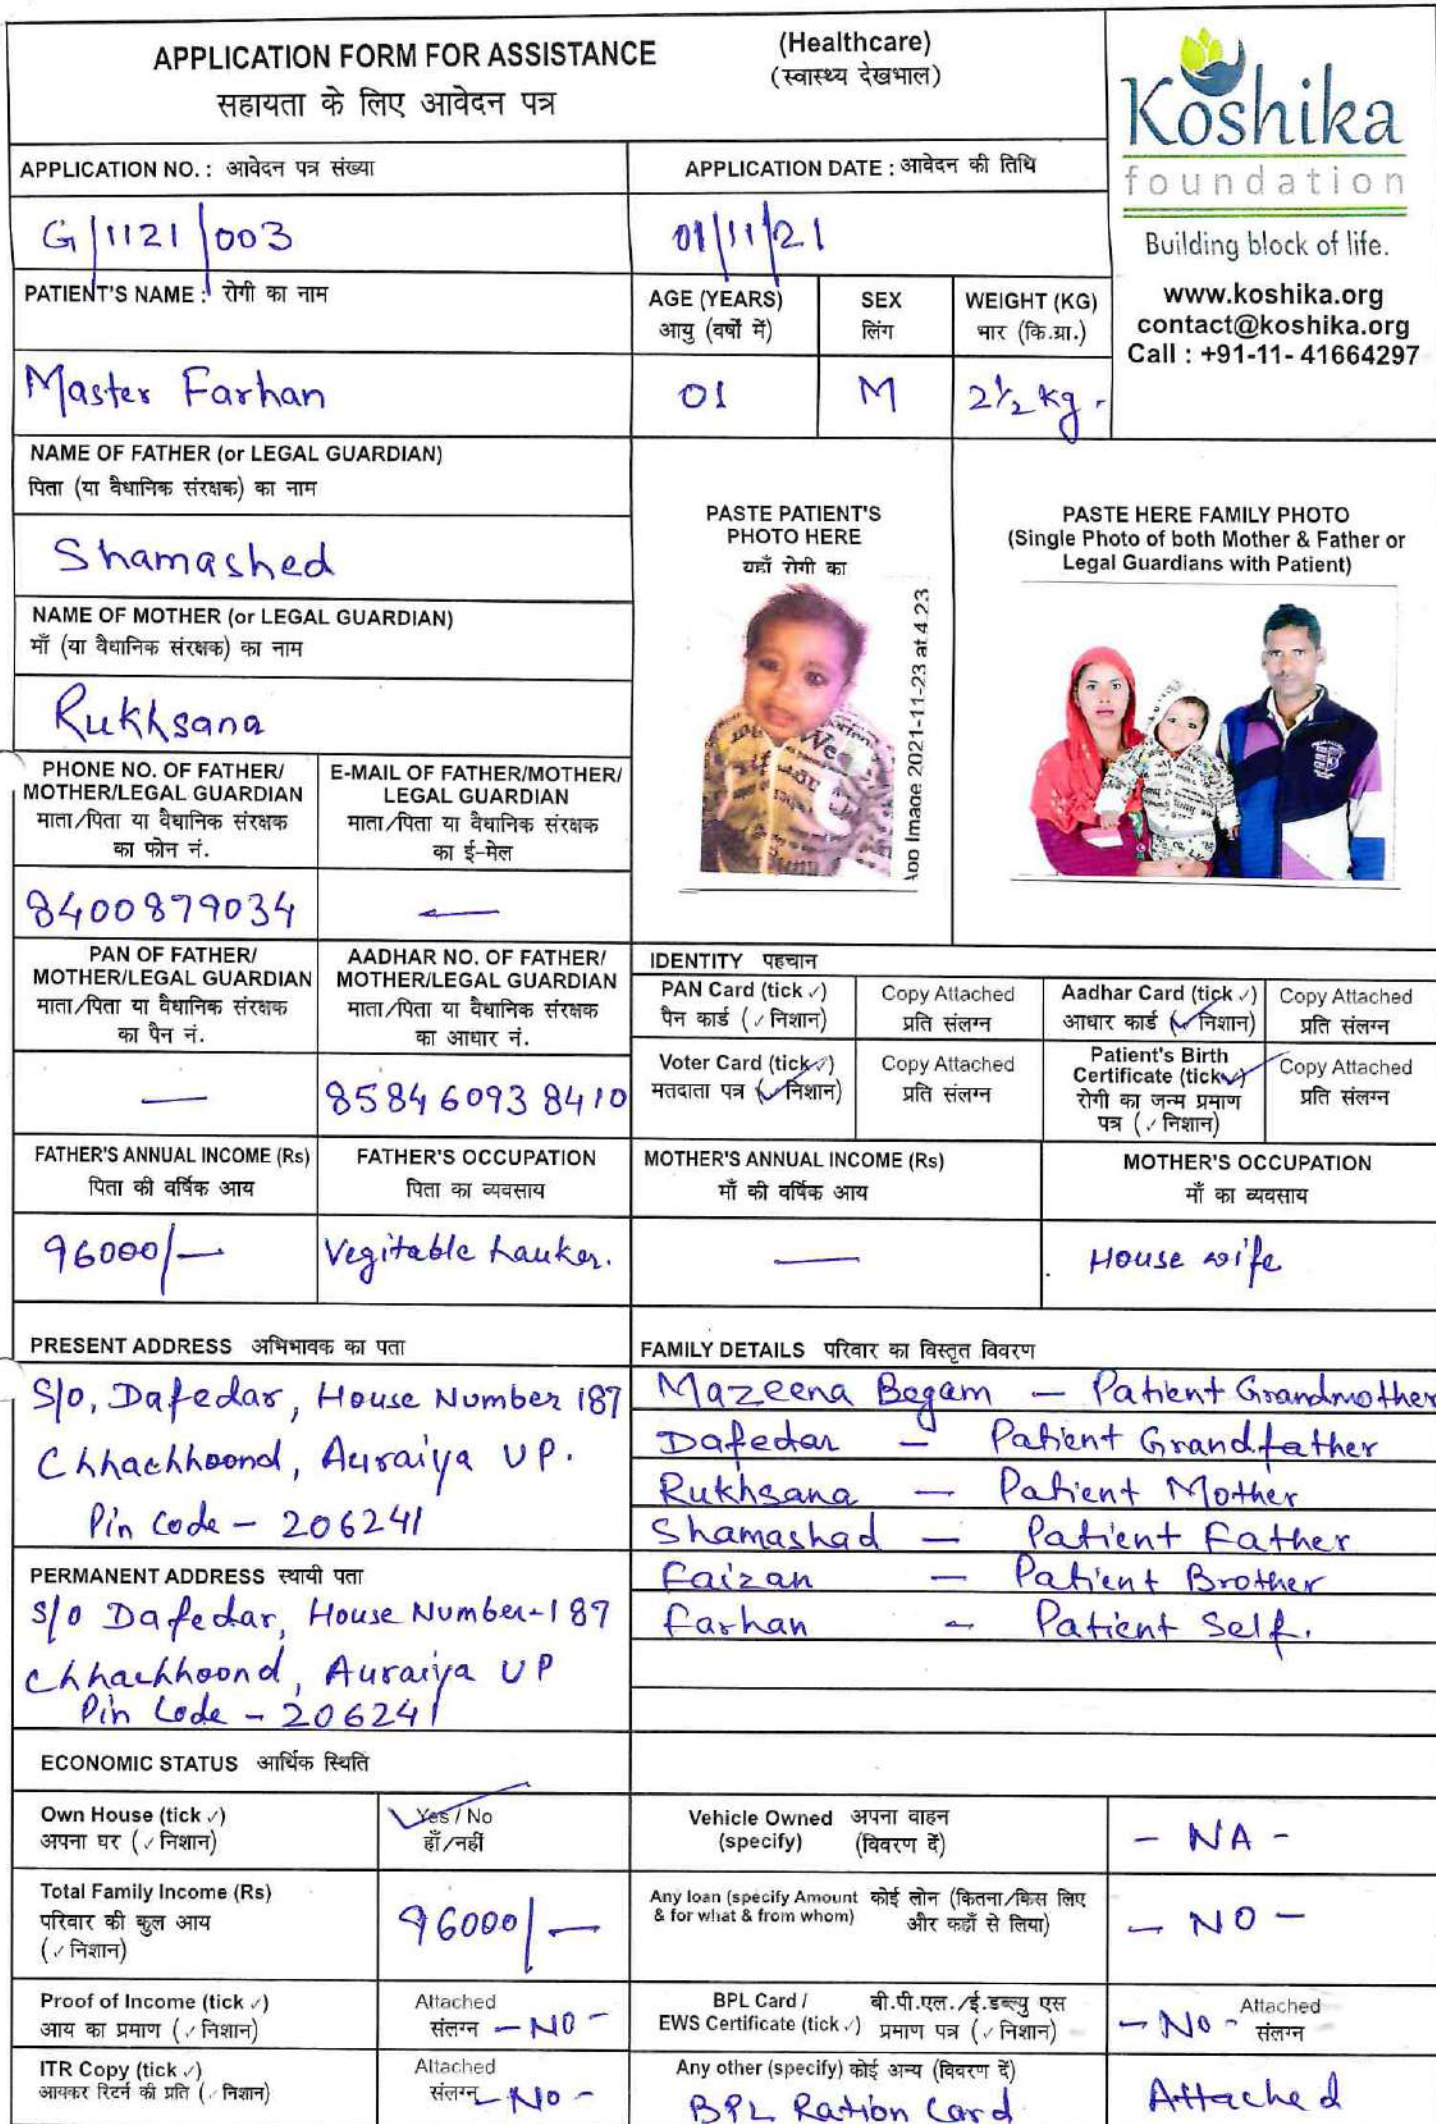 APPLICATION FORM FOR ASSISTANCE
(Healthcare)
सहायता के लिए आवेदन पत्र
(स्वास्थ्य देखभाल)
Koshika
foundation
Building block of life.
www.koshika.org
contact@koshika.org
Call : +91-11- 41664297
APPLICATION NO. : आवेदन पत्र संख्या
APPLICATION DATE : आवेदन की तिथि
G/1121/003
01/11/21
PATIENT'S NAME : रोगी का नाम
AGE (YEARS)
आयु (वर्षों में)
SEX
लिंग
WEIGHT (KG)
भार (कि.ग्रा.)
Master Farhan
01
M
2½ kg.
NAME OF FATHER (or LEGAL GUARDIAN)
पिता (या वैधानिक संरक्षक) का नाम
Shamashed
NAME OF MOTHER (or LEGAL GUARDIAN)
माँ (या वैधानिक संरक्षक) का नाम
Rukhsana
PASTE PATIENT'S
PHOTO HERE
यहाँ रोगी का
Image 2021-11-23 at 4.23
PASTE HERE FAMILY PHOTO
(Single Photo of both Mother & Father or
Legal Guardians with Patient)
PHONE NO. OF FATHER/
MOTHER/LEGAL GUARDIAN
माता/पिता या वैधानिक संरक्षक
का फोन नं.
E-MAIL OF FATHER/MOTHER/
LEGAL GUARDIAN
माता/पिता या वैधानिक संरक्षक
का ई-मेल
8400879034
—
PAN OF FATHER/
MOTHER/LEGAL GUARDIAN
माता/पिता या वैधानिक संरक्षक
का पैन नं.
AADHAR NO. OF FATHER/
MOTHER/LEGAL GUARDIAN
माता/पिता या वैधानिक संरक्षक
का आधार नं.
—
8584 6093 8410
IDENTITY पहचान
PAN Card (tick ✓)
पैन कार्ड (✓ निशान)
Copy Attached
प्रति संलग्न
Aadhar Card (tick ✓)
आधार कार्ड (✓ निशान)
Copy Attached
प्रति संलग्न
Voter Card (tick ✓)
मतदाता पत्र (✓ निशान)
Copy Attached
प्रति संलग्न
Patient's Birth
Certificate (tick ✓)
रोगी का जन्म प्रमाण
पत्र (✓ निशान)
Copy Attached
प्रति संलग्न
FATHER'S ANNUAL INCOME (Rs)
पिता की वर्षिक आय
FATHER'S OCCUPATION
पिता का व्यवसाय
MOTHER'S ANNUAL INCOME (Rs)
माँ की वर्षिक आय
MOTHER'S OCCUPATION
माँ का व्यवसाय
96000/—
Vegitable hauker.
—
House wife
PRESENT ADDRESS अभिभावक का पता
S/O, Dafedar, House Number 187
Chhachhoond, Auraiya UP.
Pin Code - 206241
PERMANENT ADDRESS स्थायी पता
S/o Dafedar, House Number-187
Chhachhoond, Auraiya UP
Pin Code - 206241
FAMILY DETAILS परिवार का विस्तृत विवरण
Mazeena Begam — Patient Grandmother
Dafedar — Patient Grandfather
Rukhsana — Patient Mother
Shamashad — Patient Father
Faizan — Patient Brother
Farhan - Patient Self.
ECONOMIC STATUS आर्थिक स्थिति
Own House (tick ✓)
अपना घर (✓ निशान)
Yes / No
हाँ/नहीं
Vehicle Owned अपना वाहन
(specify) (विवरण दें)
- NA -
Total Family Income (Rs)
परिवार की कुल आय
(✓ निशान)
96000/—
Any loan (specify Amount कोई लोन (कितना/किस लिए
& for what & from whom) और कहाँ से लिया)
- NO -
Proof of Income (tick ✓)
आय का प्रमाण (✓ निशान)
Attached
संलग्न - NO -
BPL Card / बी.पी.एल./ई.डब्ल्यु एस
EWS Certificate (tick ✓) प्रमाण पत्र (✓ निशान)
- No - Attached
संलग्न
ITR Copy (tick ✓)
आयकर रिटर्न की प्रति (✓ निशान)
Attached
संलग्न - No -
Any other (specify) कोई अन्य (विवरण दें)
BPL Ration Card
Attached